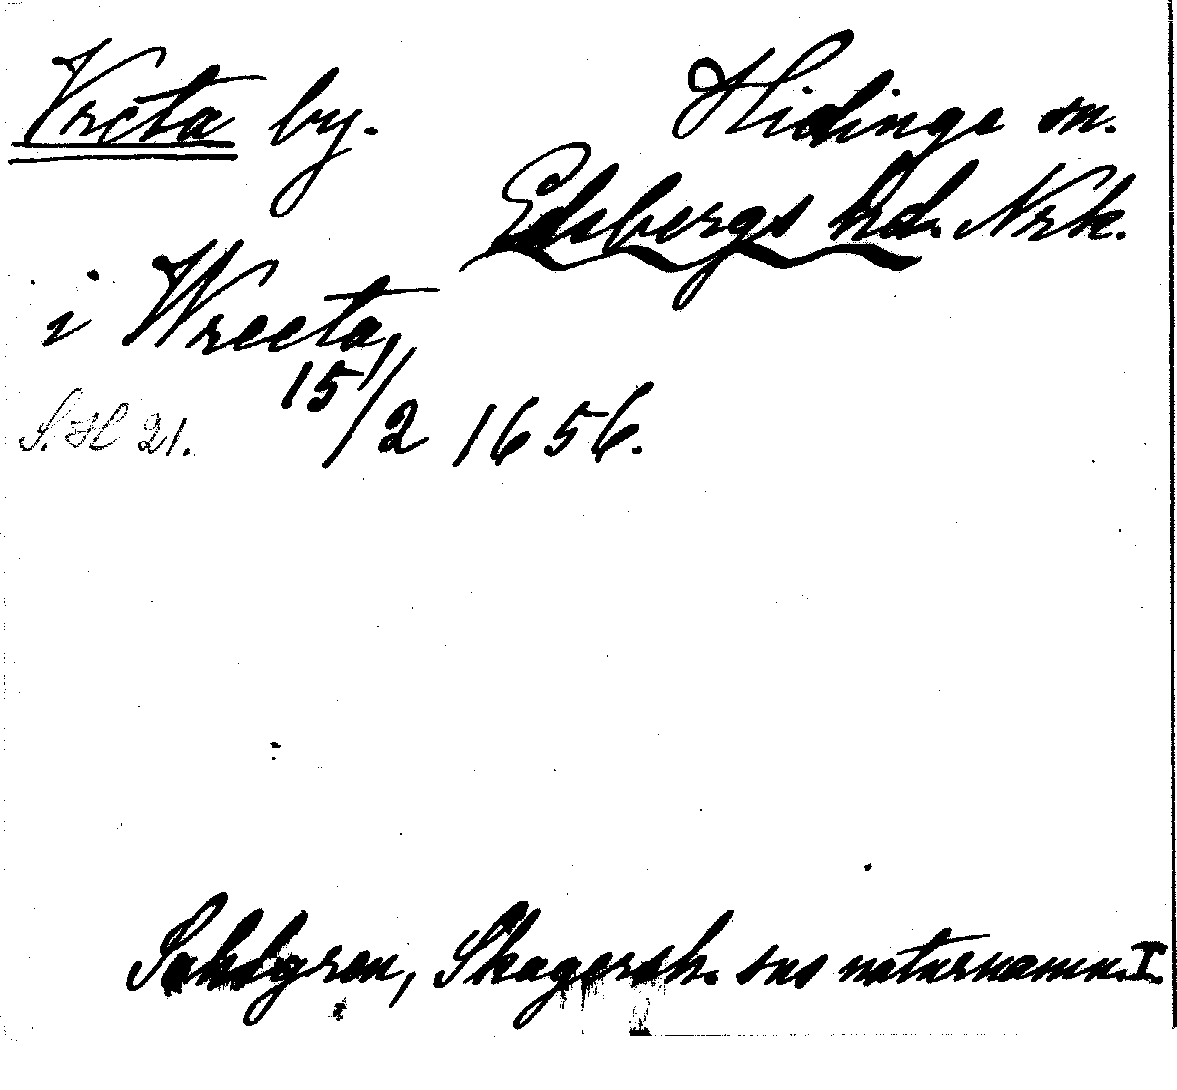 Vreta by.
Hidinge sn.
Edsbergs hd. Nrk.
i Wreeta,
15/2 1656.
S. Hl 21.
Sahlgren, Skagersh. sns naturnamn. I.